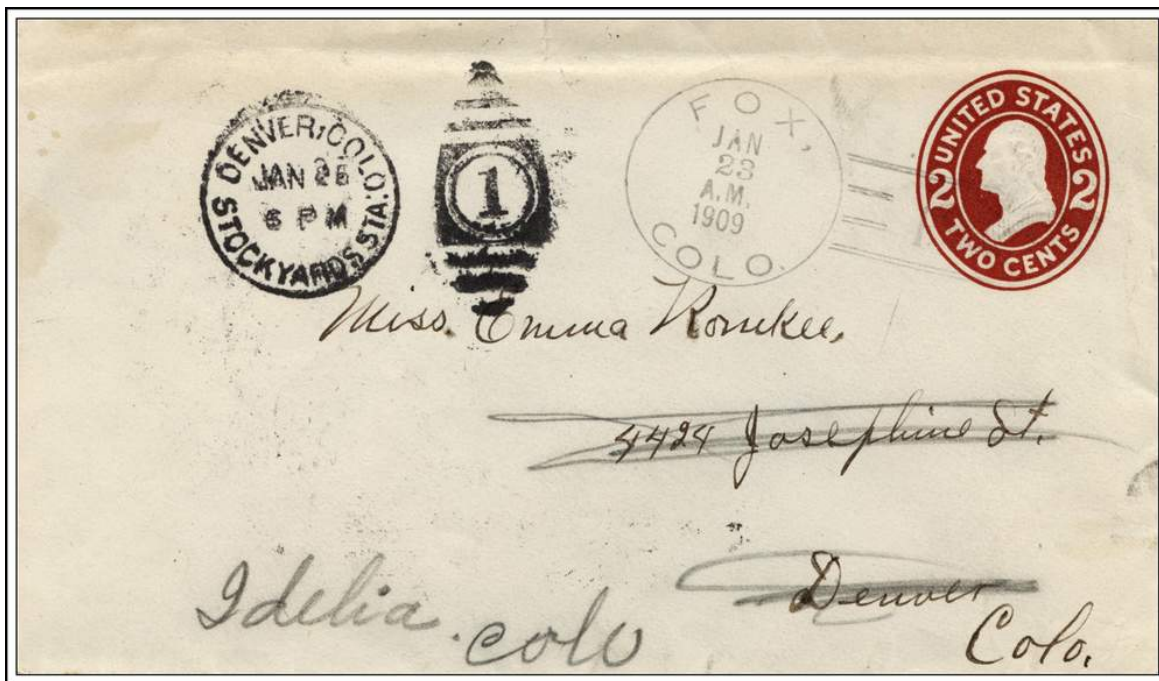 DENVER, COLO.
JAN 25
6 PM
STOCKYARDS STA.
1
FOX,
JAN
23
A.M.
1909
COLO.
UNITED STATES
2 2
TWO CENTS
Miss. Emma Romkee,
4424 Josephine St.
Denver
Colo.
Idelia. colo